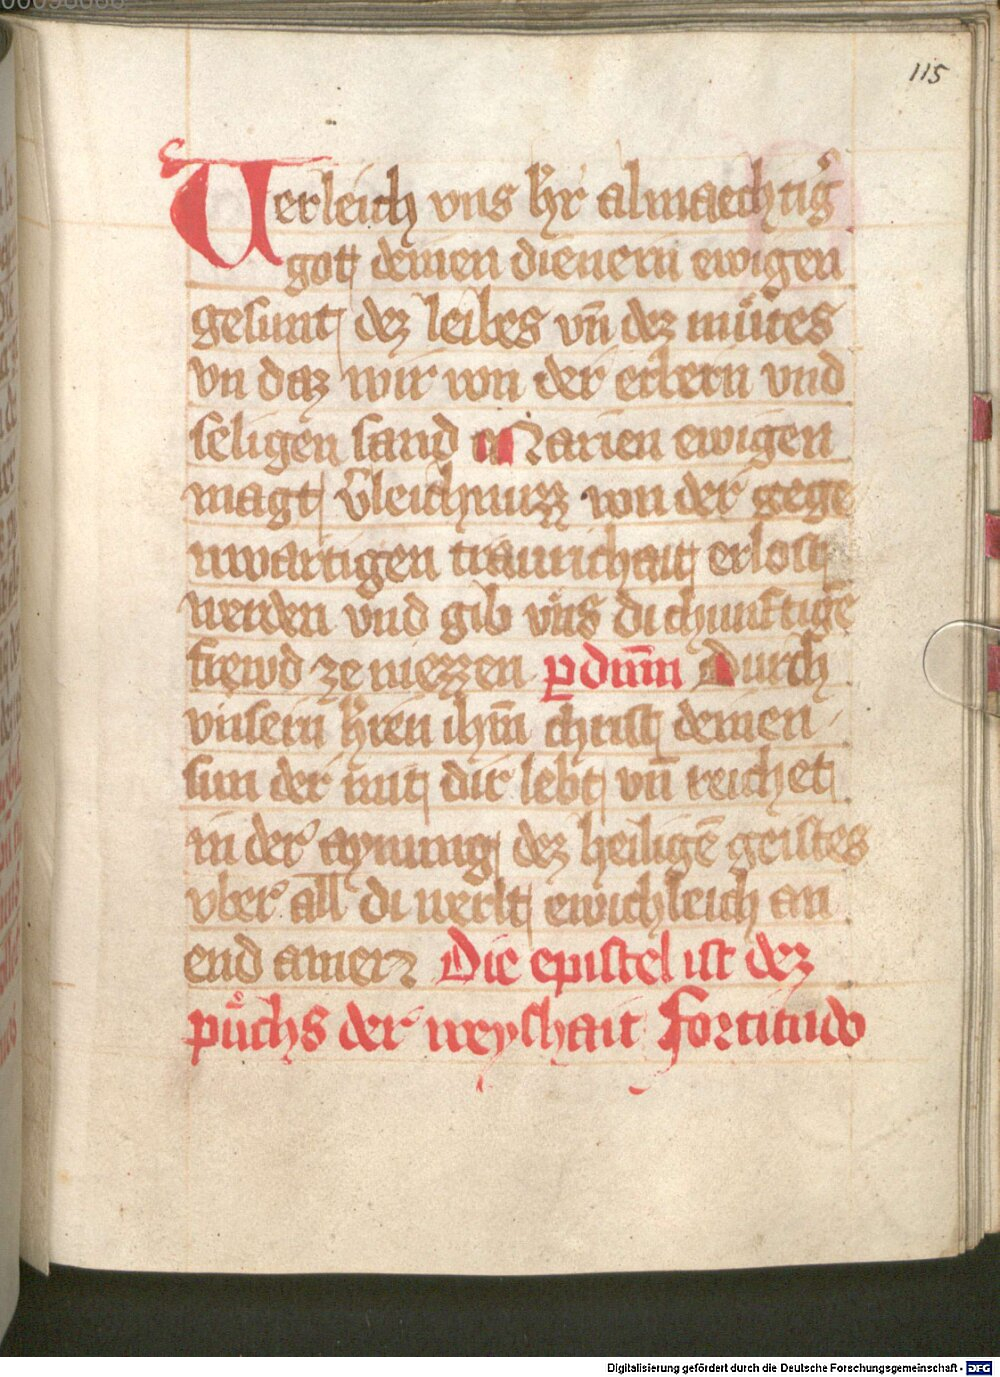 115
Verleich vns hr̄ almaechtig̾
gott deinen dienern ewigen
gesunt dez leibes vn̄ dez muͤtes
vn daz wir von der erbern vnd
seligen sand Marien ewigen
magt v̄leichnuzz von der gege
nwartigen traurichait erlost
werden vnd gib vns di chunftigē
frewd ze niezzen ꝑ dn̄m Durch
vnsern h̄ren ihm̄ christ deinen
sun der mit dir lebt vn̄ reichet
in der aynung dez heiligē geistes
vber all di werlt ewichleich an
end amen Die epistel ist dez
puͤchs der weyshait Fortitudo
Digitalisierung gefördert durch die Deutsche Forschungsgemeinschaft - DFG